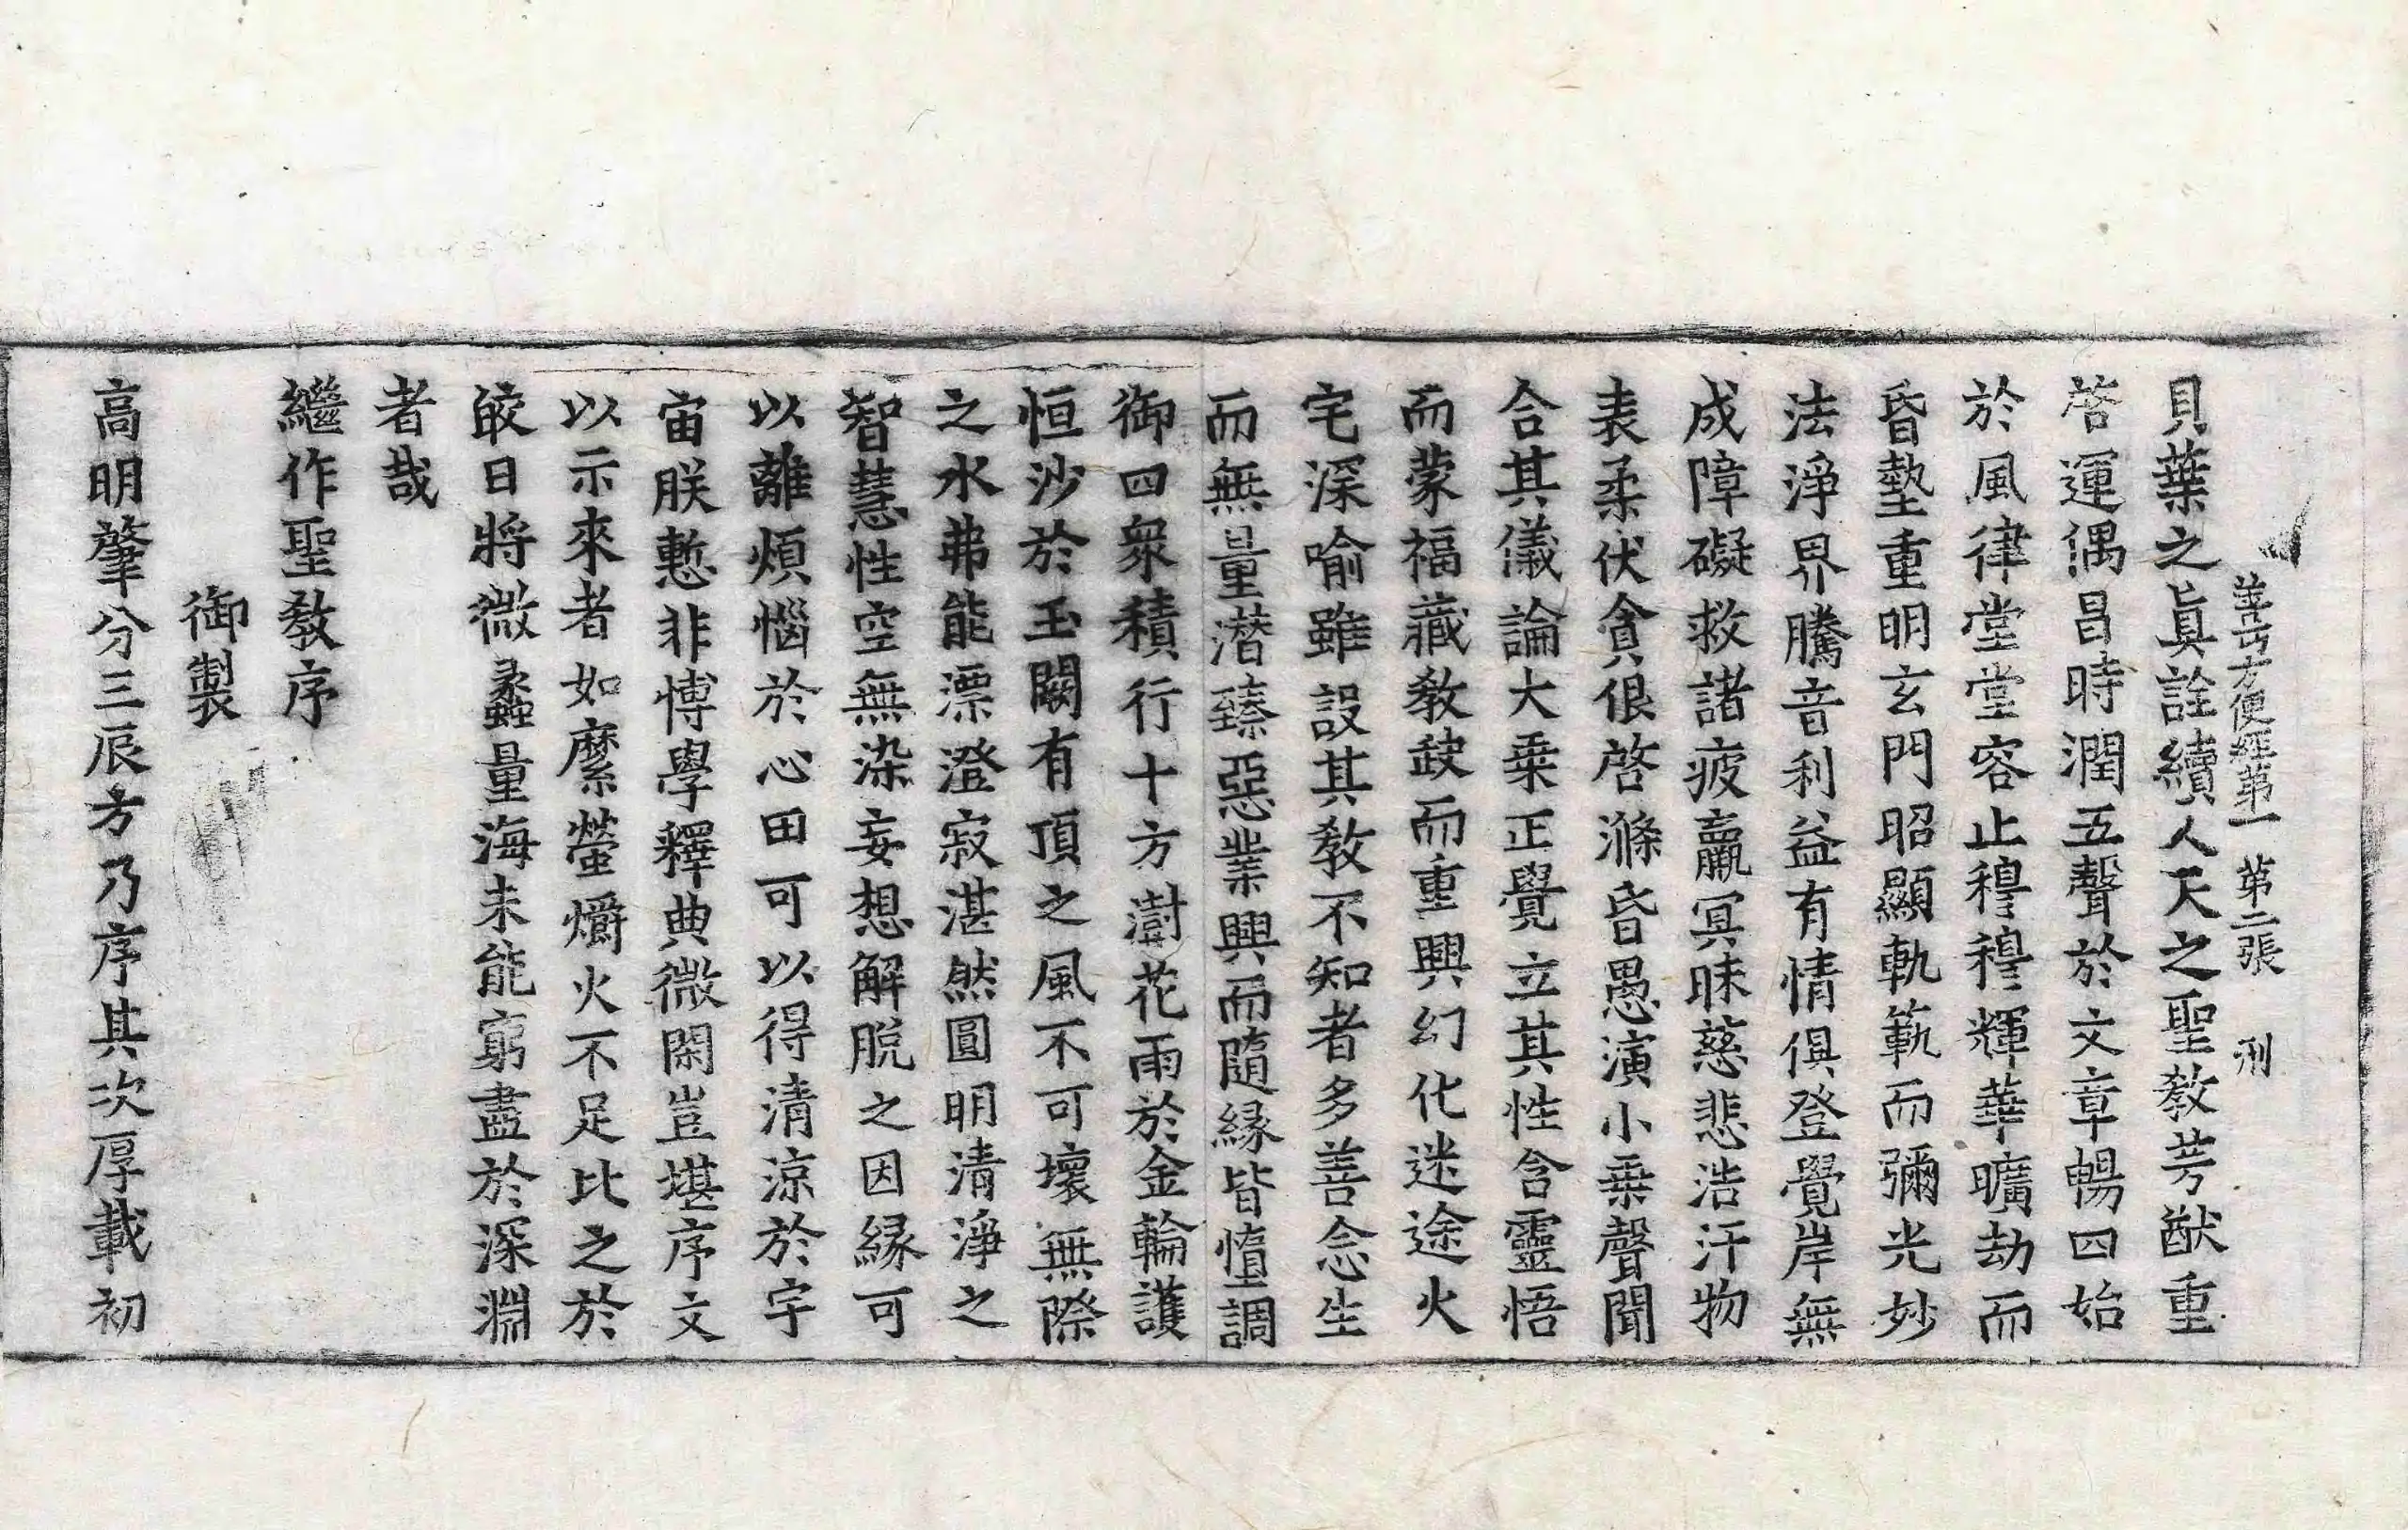 善巧方便經第一 第二張 刑
貝葉之眞詮續人天之聖教芳猷重
啓運偶昌時潤五聲於文章暢四始
於風律堂堂容止穆穆輝華曠劫而
昏墊重明玄門昭顯軌範而彌光妙
法淨界騰音利益有情俱登覺岸無
成障礙救諸疲羸冥昧慈悲浩汗物
表柔伏貪佷啓滌昏愚演小乗聲聞
合其儀論大乗正覺立其性含靈悟
而蒙福藏教缺而重興幻化迷途火
宅深喻雖設其教不知者多善念生
而無量潜臻惡業興而隨縁皆墮調
御四衆積行十方澍花雨於金輪護
恒沙於玉闕有頂之風不可壞無際
之水弗能漂澄寂湛然圓明清淨之
智慧性空無染妄想解脱之因縁可
以離煩惱於心田可以得清涼於宇
宙朕慙非博學釋典微閑豈堪序文
以示來者如縻螢爝火不足比之於
皎日將微蠡量海未能窮盡於深淵
者哉
繼作聖教序
御製
高明肇分三辰方乃序其次厚載初